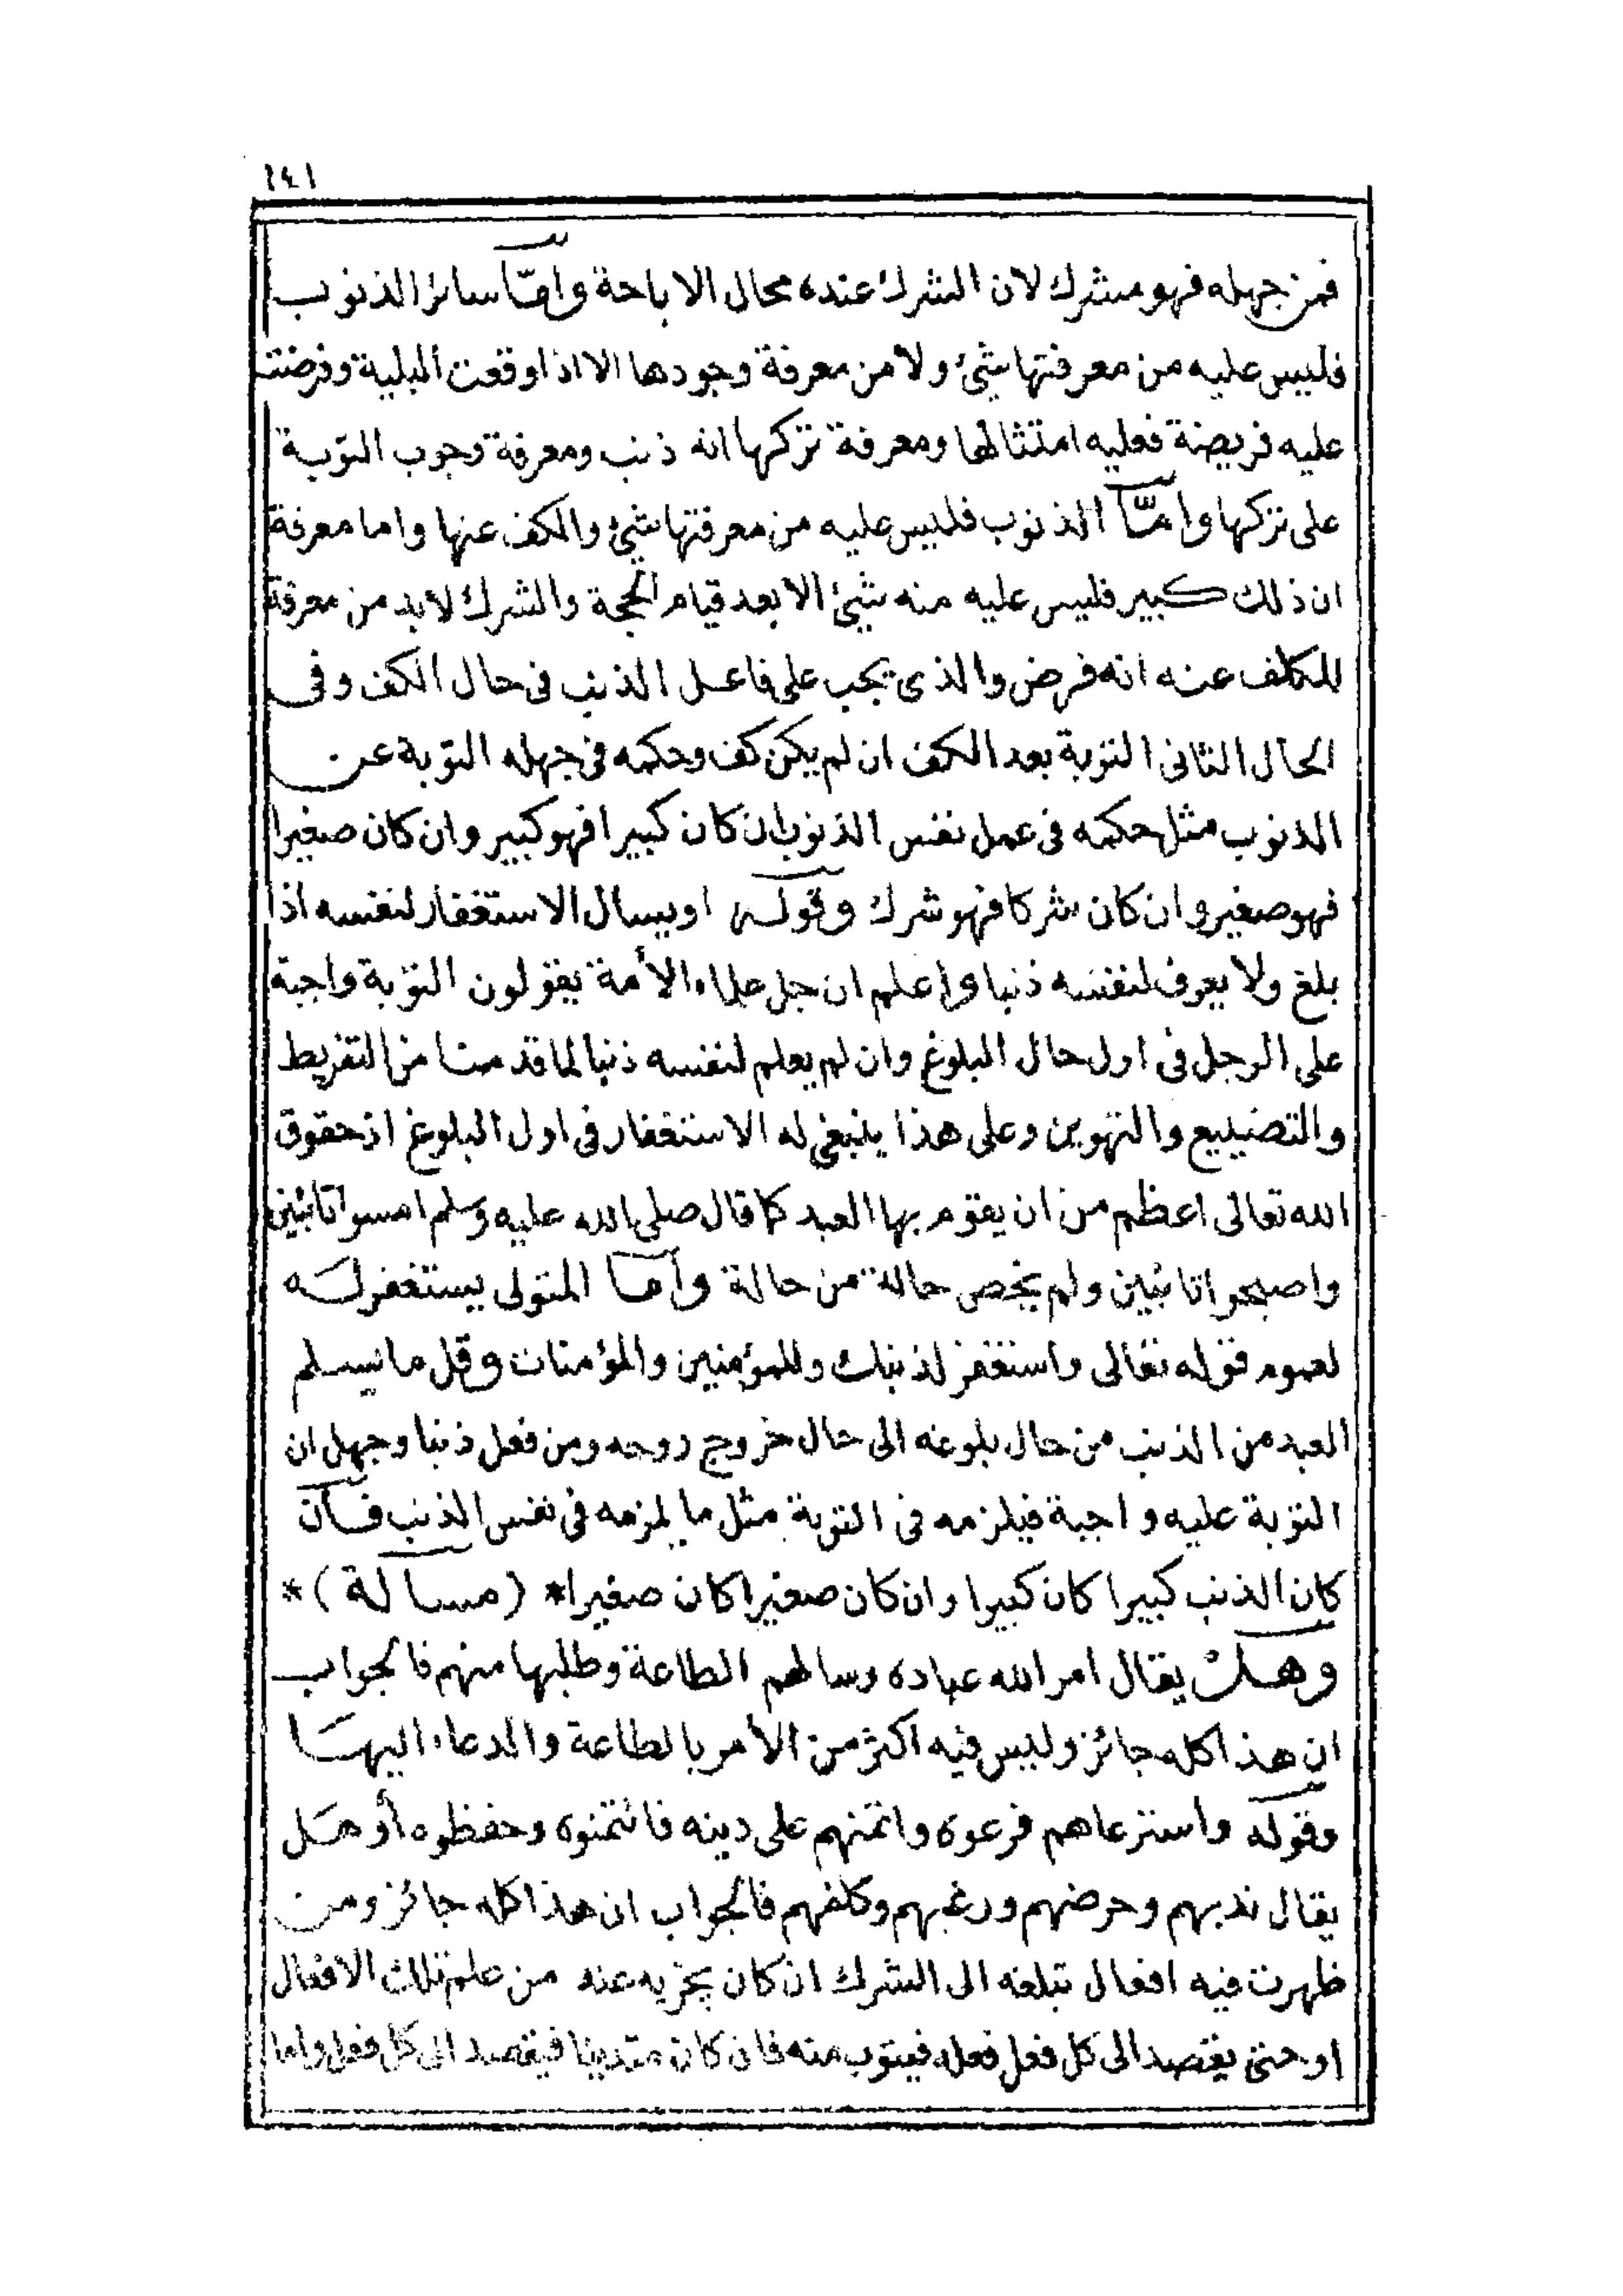 ١٤١
فمن جهله فهو مشرك لان الشرك عنده محال الاباحة واما سائر الذنوب
فليس عليه من معرفتها شئ ولا من معرفة وجودها الا اذا وقعت البلية وفرضت
عليه فريضة فعليه امتثالها ومعرفة تركها انه ذنب ومعرفة وجوب التوبة
على تركها واما الذنوب فليس عليه من معرفتها شئ والكف عنها واما معرفة
ان ذلك كبير فليس عليه منه شئ الا بعد قيام الحجة والشرك لا بد من معرفة
المكلف عنه انه فرض والذى يجب على فاعل الذنب فى حال الكف وفى
الحال الثانى التوبة بعد الكف ان لم يكن كف وحكمه فى جهله التوبة عن
الذنوب مثل حكمه فى عمل نفس الذنوب ان كان كبيرا فهو كبير وان كان صغيرا
فهو صغير وان كان شركا فهو شرك وقوله او يسال الاستغفار لنفسه اذا
بلغ ولا يعرف لنفسه ذنبا واعلم ان جل علماء الأمة يقولون التوبة واجبة
على الرجل فى اول حال البلوغ وان لم يعلم لنفسه ذنبا لما قدمنا من التفريط
والتضييع والتهوين وعلى هذا ينبغى له الاستغفار فى اول البلوغ اذ حقوق
الله تعالى اعظم من ان يقوم بها العبد كما قال صلى الله عليه وسلم امسوا تائبين
واصبحوا تائبين ولم يخص حالة من حالة واما المتولى يستغفر له
لعموم قوله تعالى واستغفر لذنبك وللمؤمنين والمؤمنات وقل ما يسلم
العبد من الذنب من حال بلوغه الى حال خروج روحه ومن فعل ذنبا وجهل ان
التوبة عليه واجبة فيلزمه فى التوبة مثل ما يلزمه فى نفس الذنب فان
كان الذنب كبيرا كان كبيرا وان كان صغيرا كان صغيرا* (مسالة) *
وهل يقال امر الله عباده وسالهم الطاعة وطلبها منهم فالجواب
ان هذا كله جائز وليس فيه اكثر من الأمر بالطاعة والدعاء اليها
وقوله واسترعاهم فرعوه وائتمنهم على دينه فائتمنوه وحفظوه أو هل
يقال ندبهم وحرضهم ورغبهم وكلفهم فالجواب ان هذا كله جائز ومن
ظهرت فيه افعال تبلغه الى الشرك ان كان يجزيه عنه من علم تلك الافعال
او حتى يقصد الى كل فعل فعله فيتوب منه فان كان متدينا فيقصد الى كل فعل واما